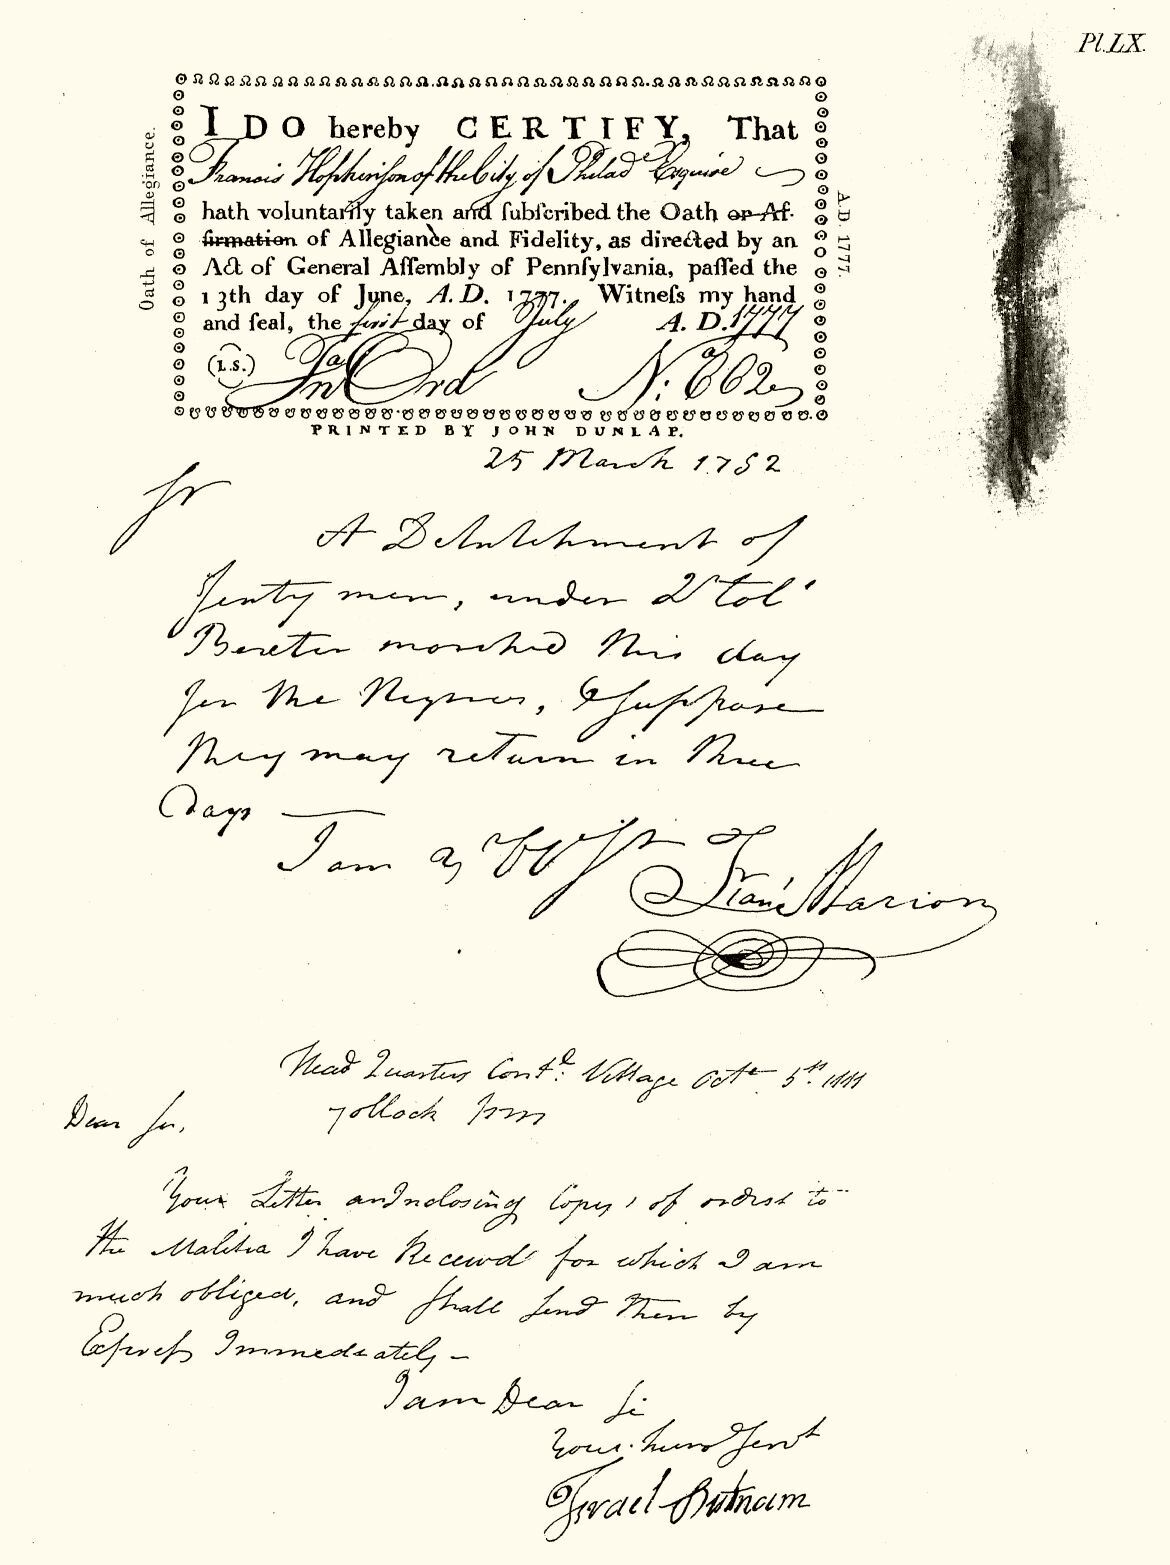 Pl. LX.
Oath of Allegiance.
I DO hereby CERTIFY, That
Francis Hopkinson of the City of Philad Esquire
hath voluntarily taken and ſubſcribed the Oath or Af-
firmation of Allegiance and Fidelity, as directed by an
Act of General Aſſembly of Pennſylvania, paſſed the
13th day of June, A. D. 1777. Witneſs my hand
and ſeal, the first day of July A. D. 1777
(L.S.) Jn Ord No:
A.D. 1777.
PRINTED BY JOHN DUNLAP.
25 March 1782
Sr
A Detatchment of
men, under
marched this day
for the Negroes, I Suppose
they may return in three
days —
I am
Frans Marion
Head Quarters Cont.l Village Octr 5th
Dear Sir,
Your Letter and Inclosing Copys of orders to
the Malitia I have Receivd for which I am
much obliged, and shall send them by
Express Immediately —
I am Dear Sir
Your hum Servt
Israel Putnam